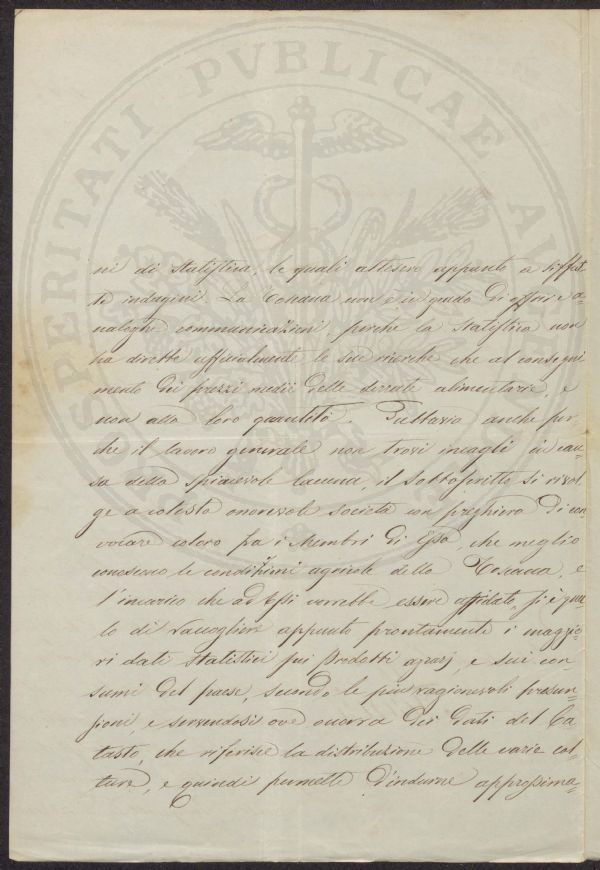 PROSPERITATI PVBLICAE AVGE
ni di Statistica, le quali attesero appunto a siffat
te indagini. La Toscana non è in grado di offrire a-
naloghe communicazioni, perchè la Statistica non
ha dirette ufficialmente le sue ricerche che al consegui
mento dei prezzi medii delle derrate alimentarie, e
non alla loro quantità. Tuttavia anche per
chè il lavoro generale non trovi incagli in cau-
sa della spiacevole lacuna, il Sottoscritto si rivol
ge a cotesta onorevole Società con preghiera di con
vocare coloro fra i Membri di Essa, che meglio
conoscono le condizioni agricole della Toscana, e
l'incarico che ad Essi verrebbe essere affidato, si è quel
lo di raccogliere appunto prontamente i maggio-
ri dati Statistici sui Prodotti agrarj, e sui con-
sumi del paese, secondo le più ragionevoli presun-
zioni, e servendosi ove occorra dei dati del Ca
tasto, che riferisce la distribuzione delle varie col-
ture, e quindi permette d'indurne approssima-